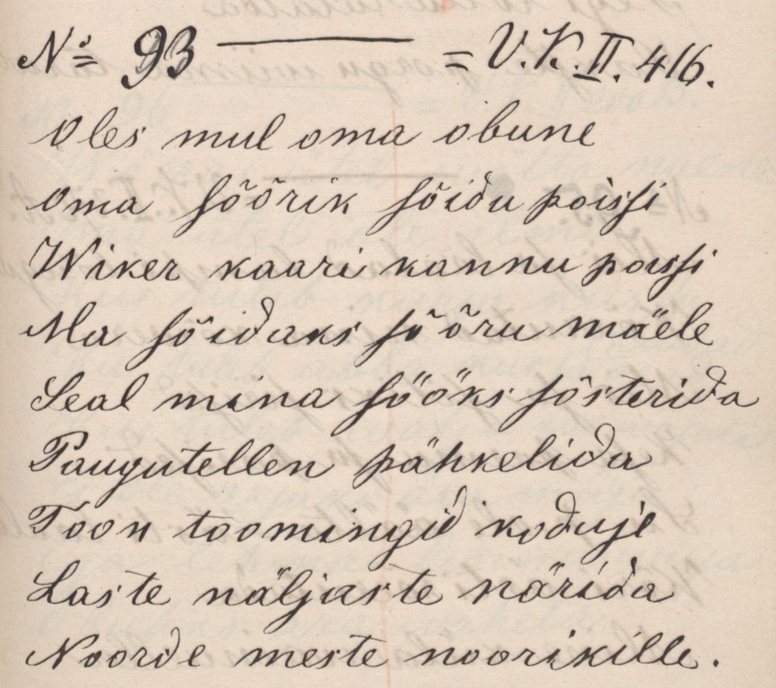 № 93 ——— = V. K. II. 416.
Oles mul oma obune
Oma sõõrik sõidu poissi
Wiker kaari kannu poissi
Ma sõidaks sõõru mäele
Seal mina sööks sõsterida
Paugutellen pähkelida
Toon toomingid koduje
Laste näljaste närida
Noorde meste noorikille.